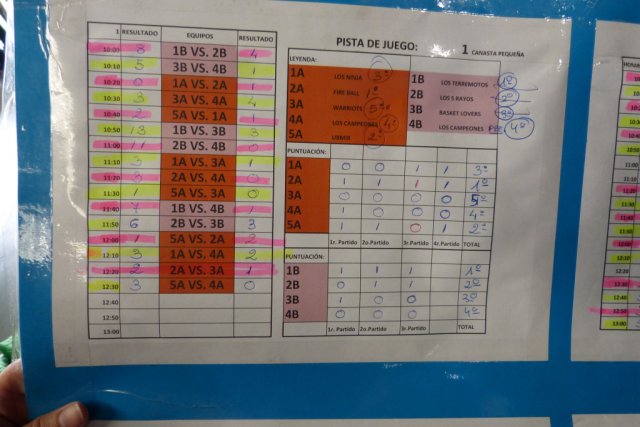 PISTA DE JUEGO: 1 CANASTA PEQUEÑA
1 RESULTADO EQUIPOS RESULTADO
10:00 8 1B VS. 2B 4
10:10 5 3B VS. 4B 1
10:20 0 1A VS. 2A 1
10:30 3 3A VS. 4A 4
10:40 2 5A VS. 1A 1
10:50 13 1B VS. 3B 3
11:00 11 2B VS. 4B 0
11:10 3 1A VS. 3A 1
11:20 2A VS. 4A 0
11:30 1 5A VS. 3A 0
11:40 7 1B VS. 4B 1
11:50 6 2B VS. 3B 3
12:00 1 5A VS. 2A 2
12:10 3 1A VS. 4A 2
12:20 2 2A VS. 3A 1
12:30 3 5A VS. 4A 0
12:40
12:50
13:00
LEYENDA:
1A LOS NINJA 3º
2A FIRE BALL 1º
3A WARRIOTS 5º
4A LOS CAMPEONES 4º
5A UBMIR 2º
1B LOS TERREMOTOS 1º
2B LOS 5 RAYOS 2º
3B BASKET LOVERS 3º
4B LOS CAMPEONES 4º
PUNTUACIÓN:
1A 0 0 1 1 3º
2A 1 1 1 1 1º
3A 0 0 0 0 5º
4A 1 0 0 0 4º
5A 1 1 0 1 2º
1r. Partido 2o.Partido 3r.Partido 4r.Partido TOTAL
PUNTUACIÓN:
1B 1 1 1 1º
2B 0 1 1 2º
3B 1 0 0 3º
4B 0 0 0 4º
1r. Partido 2o.Partido 3r.Partido TOTAL